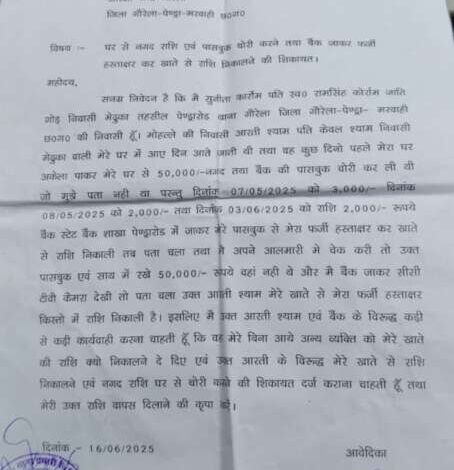 जिला गौरेला-पेण्ड्रा-मरवाही छ०ग०
विषय :- घर से नगद राशि एवं पासबुक चोरी करने तथा बैंक जाकर फर्जी
हस्ताक्षर कर खाते से राशि निकालने की शिकायत।
महोदय,
सनम्र निवेदन है कि मैं सुनीता कार्रोम पति स्व० रामसिंह कोर्राम जाति
गोड़ निवासी मेढुका तहसील पेण्ड्रारोड थाना गौरेला जिला गौरेला-पेण्ड्रा- मरवाही
छ०ग० की निवासी हूँ। मोहल्ले की निवासी आरती श्याम पति केवल श्याम निवासी
मेढुका वाली मेरे घर में आए दिन आते जाती थी तथा वह कुछ दिनो पहले मेरा घर
अकेला पाकर मेरे घर से 50,000/-नगद तथा बैंक की पासबुक चोरी कर ली थी
जो मुझे पता नही था परन्तु दिनांक 07/05/2025 को 3,000/- दिनांक
08/05/2025 को 2,000/- तथा दिनांक 03/06/2025 को राशि 2,000/- रूपये
बैंक स्टेट बैंक शाखा पेण्ड्रारोड में जाकर मेरे पासबुक से मेरा फर्जी हस्ताक्षर कर खाते
से राशि निकाली तब पता चला तथा मे अपने आलमारी मे चेक करी तो उक्त
पासबुक एवं साथ में रखे 50,000/- रूपये वहां नही थे और मैं बैंक जाकर सीसी
टीवी कैमरा देखी तो पता चला उक्त आरती श्याम मेरे खाते से मेरा फर्जी हस्ताक्षर
किस्तो में राशि निकाली है। इसलिए मैं उक्त आरती श्याम एवं बैंक के विरूद्ध कड़ी
से कड़ी कार्यवाही करना चाहती हूँ कि वह मेरे बिना आये अन्य व्यक्ति को मेरे खाते
की राशि क्यो निकालने दे दिए एवं उक्त आरती के विरूद्ध मेरे खाते से राशि
निकालने एवं नगद राशि घर से चोरी करने की शिकायत दर्ज कराना चाहती हूँ तथा
मेरी उक्त राशि वापस दिलाने की कृपा करें।
दिनांक - 16/06/2025 आवेदिका